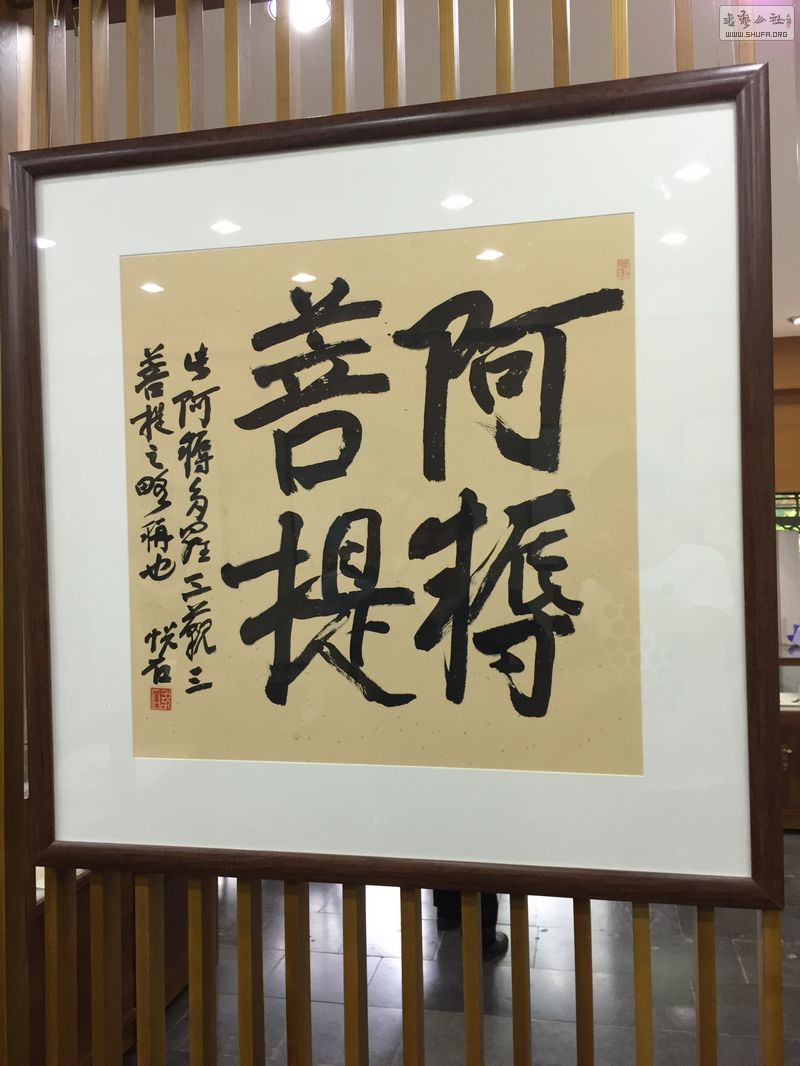 書藝公社
WWW.SHUFA.ORG
阿耨
菩提
此阿耨多羅三藐三
菩提之略稱也